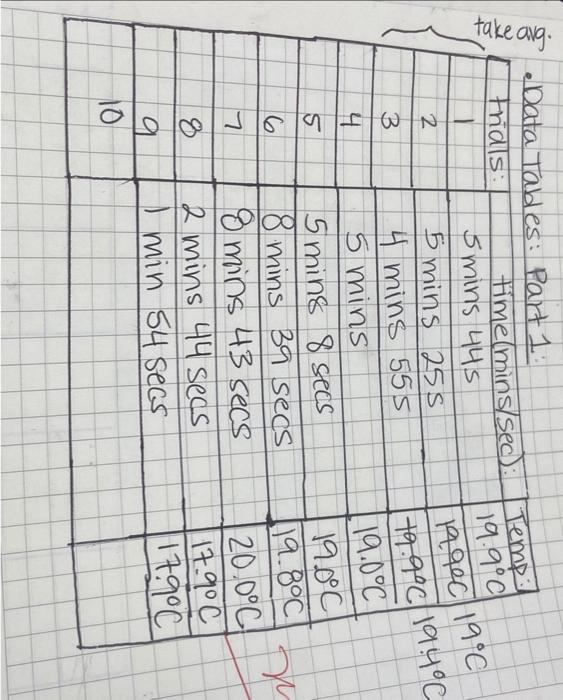 take avg.
.Data Tables: Part 1:
trials: time(mins/sec): Temp:
1 5 mins 44s 19.9°C
2 5 mins 25s 19.9°C 19°C
3 4 mins 55s 19.9°C 19.4°C
4 5 mins 19.0°C
5 5 mins 8 secs 19.0°C
6 8 mins 39 secs 19.8°C
7 8 mins 43 secs 20.0°C
8 2 mins 44 secs 17.9°C
9 1 min 54 secs 17.9°C
10